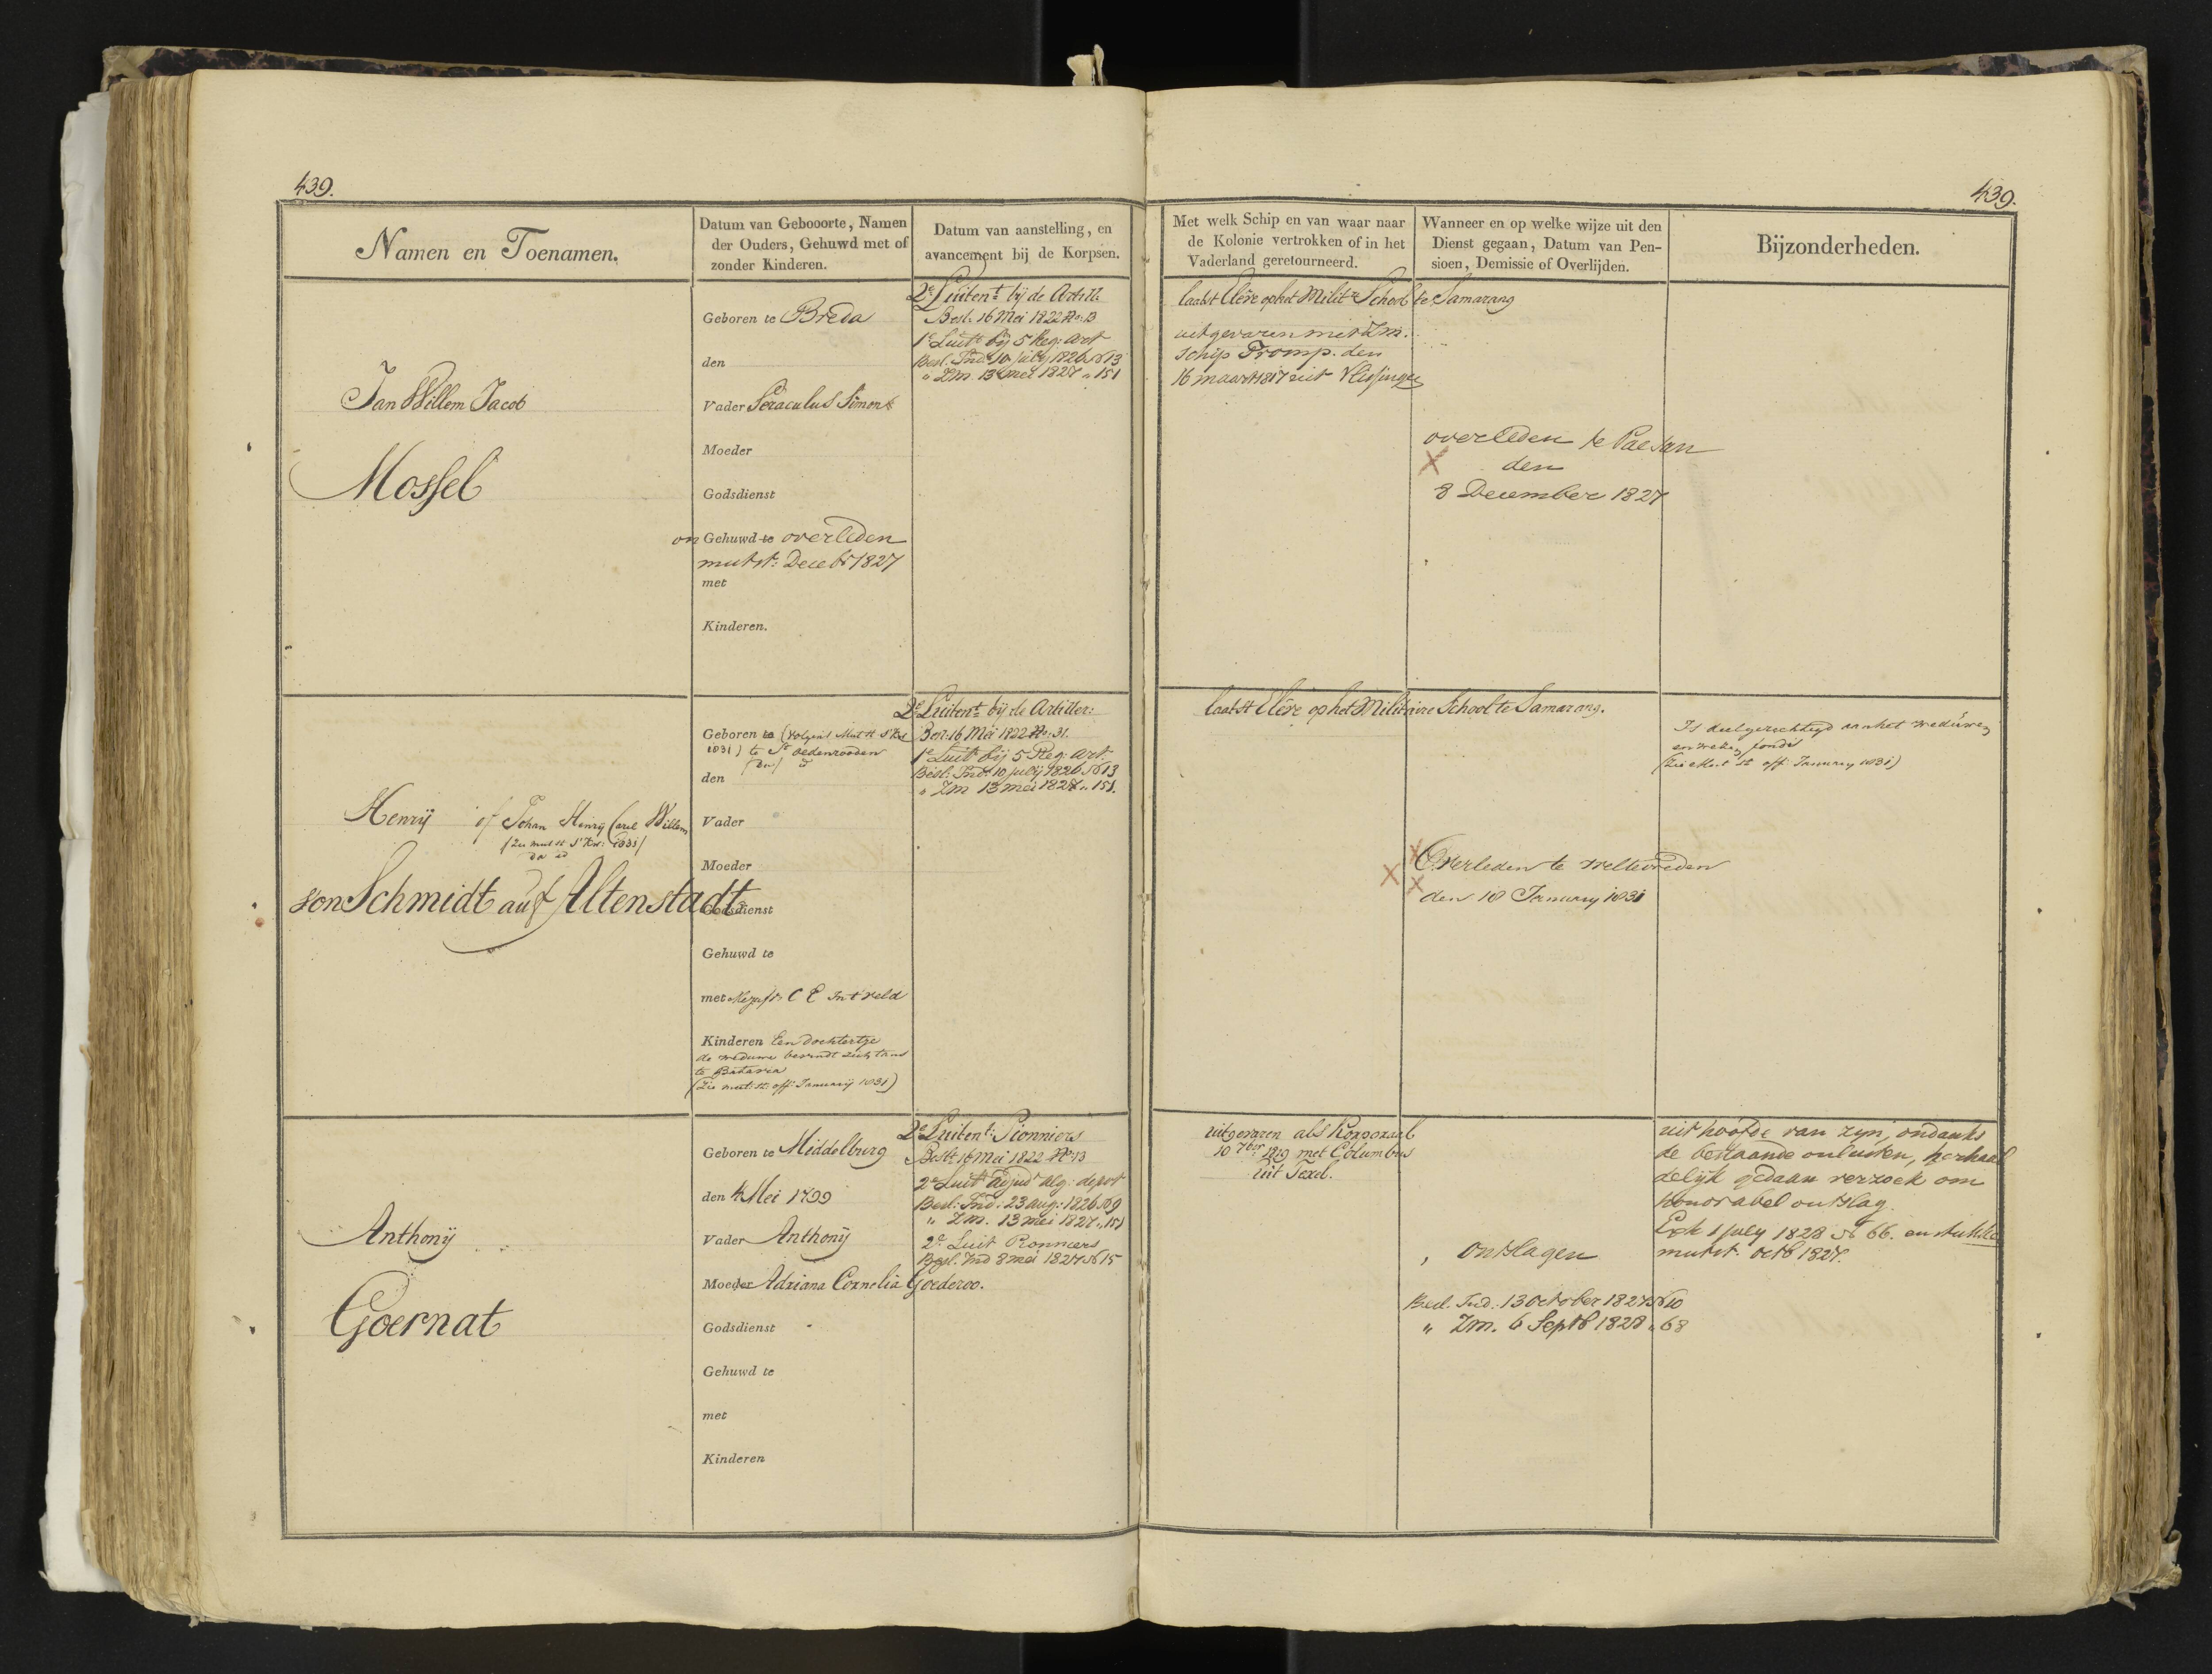 439.
439.
Namen en Toenamen.
Datum van Gebooorte, Namen
der Ouders, Gehuwd met of
zonder Kinderen.
Datum van aanstelling, en
avancement bij de Korpsen.
Met welk Schip en van waar naar
de Kolonie vertrokken of in het
Vaderland geretourneerd.
Wanneer en op welke wijze uit den
Dienst gegaan, Datum van Pen-
sioen, Demissie of Overlijden.
Bijzonderheden.
Jan Willem Jacob
Mossel
Geboren te Breda
den
Vader Simon
Moeder
Godsdienst
on Gehuwd te overleden
mutst: Decebr 1827
met
Kinderen.
2e Luitent bij de Artill.
Besl. 16 Mei 1822 No. 13
1e Luitt bij 5 Reg: Art
Besl. Ind. 10 July 1826 No 13
" Zm. 13 mei 1827 " 151
laatst Elève op het Milite School te Samarang
uitgevaren met Zm.
schip Tromp. den
16 maart 1817 uit Vlissingen
overleden te Paesan
den
8 December 1827
Henrij of Johan Henrij Carel Willem
von Schmidt auf Altenstadt
Geboren te (volgens Mutst
1831) te St oedenrooden
den
Vader
Moeder
Godsdienst
Gehuwd te
met Mejufr. C E In t veld
Kinderen Een dochtertje
de weduwe bevindt zich thans
te Batavia
(Zie mut: st: off: Januarij 1831)
2e Luitent bij de Artiller:
Besl. 16 Mei 1822 No. 31.
1e Luitt bij 5 Reg: Art.
Besl: Ind: 10 July 1826 No 13
" Zm 13 mei 1827 " 151.
laatst Elève op het Militaire School te Samarang.
Overleden te Weltevreden
den 18 January 1831
Is deelgerechtigd aan het weduwen
en weezen fonds
(Zie Mut st off: January 1831)
Anthonij
Goernat
Geboren te Middelburg
den 4 Mei 1799
Vader Anthonij
Moeder Adriana Cornelia Goederoo.
Godsdienst
Gehuwd te
met
Kinderen
2e Luitent: Pionniers
Beslt 16 Mei 1822 No. 13
2e Luitt adjudt alg: depot
Besl: Ind. 23 aug: 1826 No 9
" Zm. 13 mei 1827 " 151
2e Luit Pionniers
Besl. Ind 8 mei 1827 No 15
uitgevaren als Korporaal
10 7ber 1819 met Columbus
uit Texel.
ontslagen
Besl. Ind. 13 October 1827 No 10
" Zm. 6 Septb 1828 " 68
uit hoofde van zyn, ondanks
de bestaande onlusten, herhaal
delijk gedaan verzoek om
honorabel ontslag.
1 july 1828 No 66. en
mutst. octb 1827.